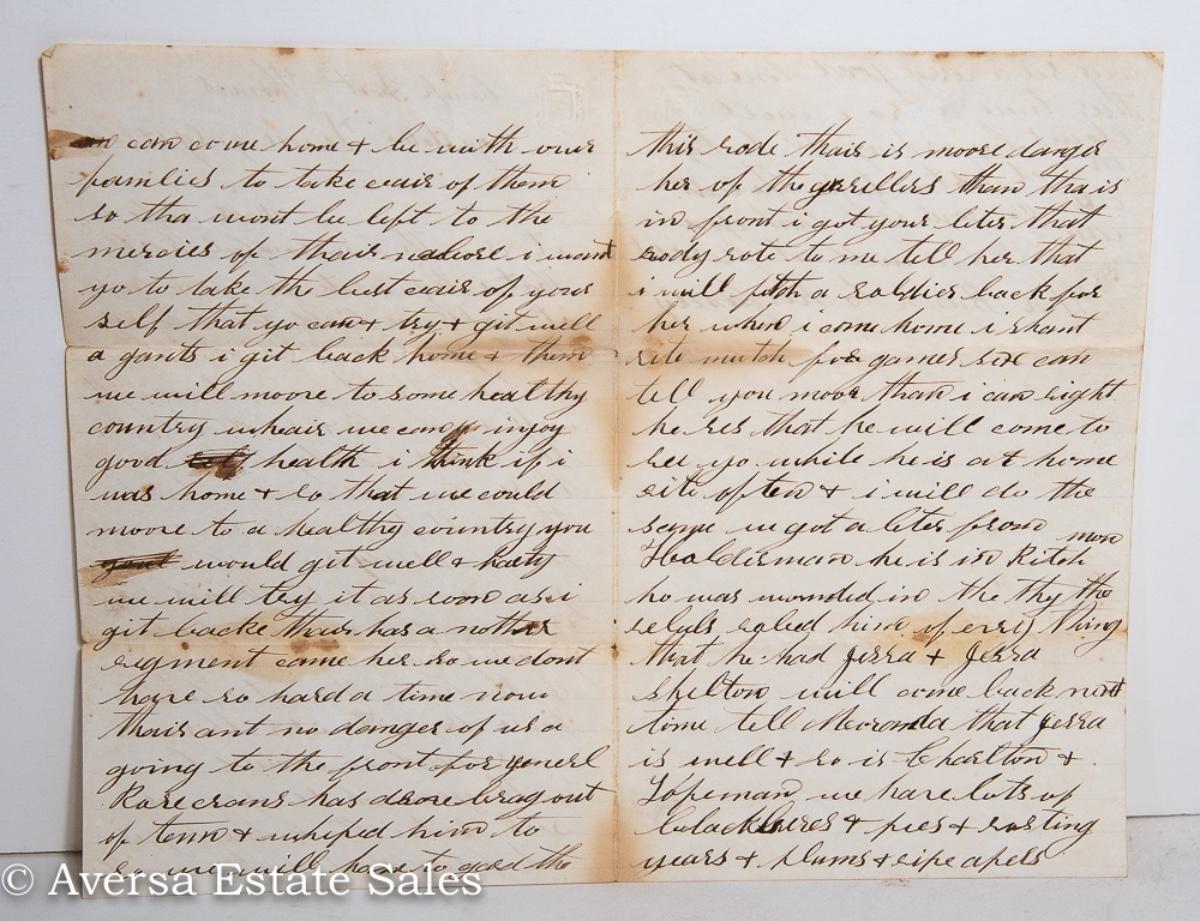 can come home + be with our
families to take ceair of them
so tha wont be left to the
mercies of thair i want
yo to take the best ceair of your
self that yo can + try + git well
a gants i git back home + then
we will moove to some healthy
country whair we can injoy
good health i think if i
was home + so that we could
moove to a healthy country you
would git well + harty
we will try it as soon as i
git backe thair has a nother
regment came her so we dont
have so hard a time now
thair ant no danger of us a
going to the front for generl
Rosecrans has drove brag out
of tenn + whiped him to
so we will have to gard the
this rode thair is moore danger
her of the gerrellers than tha is
in front i got your leter that
rote to me tell her that
i will fetch a soldier back for
her when i come home i shant
rite mutch for games sen can
tell you moor than i can right
he ses that he will come to
see yo while he is at home
rite often + i will do the
same we got a leter from
Haldieman he is in Ritch mon
he was wounded in the thy the
rebels robed him of erry thing
that he had Jessa + Jessa
skelton will come back next
time tell that Jessa
is well + so is Charlton +
Topeman we have lots of
blackberes + pies + rosting
years + plums + ripe apels
© Aversa Estate Sales